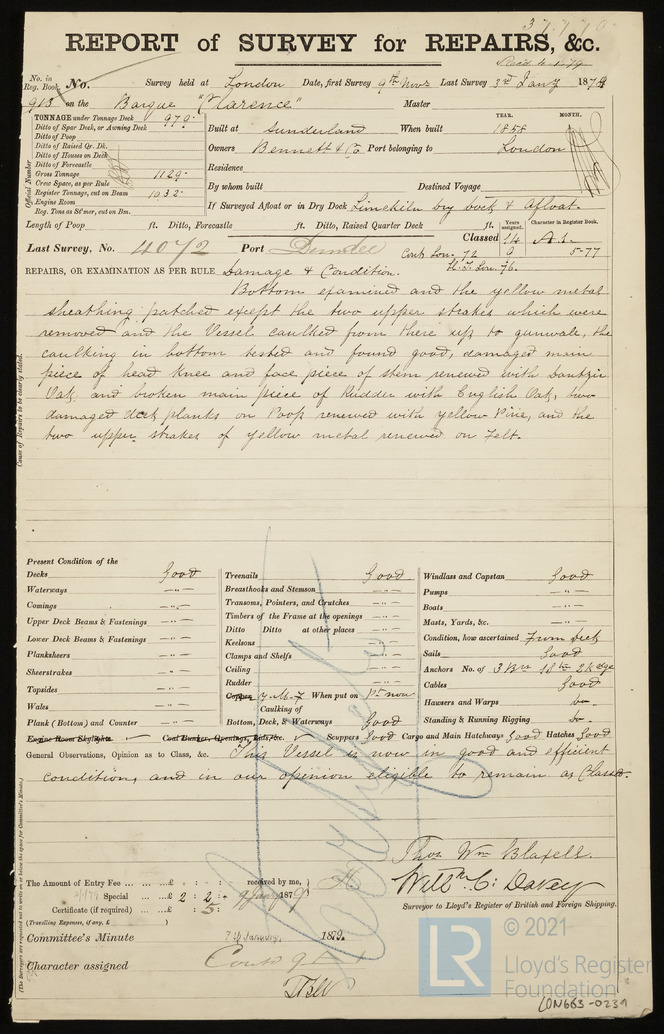 REPORT of SURVEY for REPAIRS, &c.
No. in Reg. Book No. Survey held at London Date, first Survey 9th Novr Last Survey 3rd Jany 1879
913 on the Barque "Clarence" Master
TONNAGE under Tonnage Deck 979
Ditto of Spar Deck, or Awning Deck
Ditto of Poop
Ditto of Raised Qr. Dk.
Ditto of Houses on Deck
Ditto of Forecastle
Gross Tonnage 1129
Crew Space, as per Rule
Register Tonnage, cut on Beam 1032
Engine Room
Reg. Tons as St'mer, cut on Bm.
Official Number
YEAR. MONTH.
Built at Sunderland When built 1858
Owners Bennett & Co Port belonging to London
Residence
By whom built Destined Voyage
If Surveyed Afloat or in Dry Dock Limekiln dry dock & Afloat.
Length of Poop ft. Ditto, Forecastle ft. Ditto, Raised Quarter Deck ft.
Years assigned Character in Register Book.
Last Survey, No. 4072 Port Dundee Classed 14 A1
Cont Lon. 72 9 5-77
H.T. Lon. 76.
REPAIRS, OR EXAMINATION AS PER RULE Damage & Condition.
Bottom examined and the yellow metal
sheathing patched except the two upper strakes which were
removed and the Vessel caulked from there up to gunwale, the
caulking in bottom tested and found good, damaged main
piece of head knee and face piece of stem renewed with Dantzic
Oak and broken main piece of Rudder with English Oak, two
damaged deck planks on Poop renewed with yellow Pine, and the
two upper strakes of yellow metal renewed on Felt.
Cause of Repairs to be clearly stated.
Present Condition of the
Decks Good
Waterways — " —
Comings — " —
Upper Deck Beams & Fastenings — " —
Lower Deck Beams & Fastenings — " —
Planksheers — " —
Sheerstrakes — " —
Topsides — " —
Wales — " —
Plank (Bottom) and Counter — " —
Treenails Good
Breasthooks and Stemson — " —
Transoms, Pointers, and Crutches — " —
Timbers of the Frame at the openings — " —
Ditto Ditto at other places — " —
Keelsons — " —
Clamps and Shelfs — " —
Ceiling — " —
Rudder — " —
Copper Y.M.F. When put on Pt now
Caulking of
Bottom, Deck, & Waterways Good
Windlass and Capstan Good
Pumps — " —
Boats — " —
Masts, Yards, &c. — " —
Condition, how ascertained From deck
Sails Good
Anchors No. of 3 Brs 1 Stm 2 Kedge
Cables Good
Hawsers and Warps do.
Standing & Running Rigging do.
Engine Room Skylights Coal Bunker, Openings, Lids, &c. Scuppers Good Cargo and Main Hatchways Good Hatches Good
General Observations, Opinion as to Class, &c. This Vessel is now in good and efficient
condition, and in our opinion eligible to remain as Classed.
Thos. Wm Blaxell.
Willm. C. Davey
Surveyor to Lloyd's Register of British and Foreign Shipping.
The Amount of Entry Fee ... ... £ : : received by me,
Special ... ... £ 2 : 2 : - 9 Jany 1879
Certificate (if required) ... £ : 5 :
(Travelling Expenses, if any, £ )
Committee's Minute 7th January, 1879.
Character assigned
© 2021
LR
Lloyd's Register
Foundation
LON663-0239